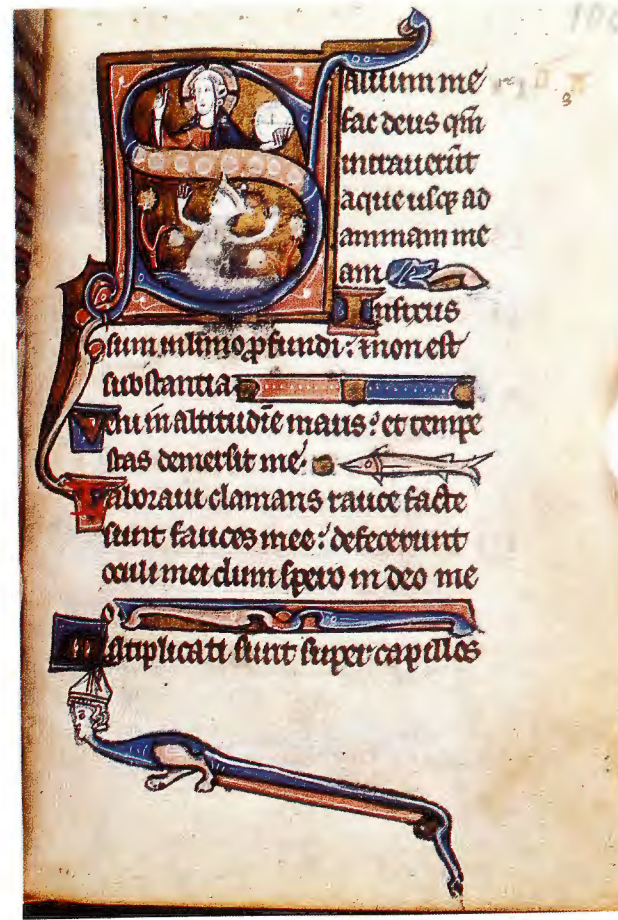 Saluum me
fac deus qm̄
intrauerūt
aque usqꝫ ad
animam me
am
Infixus
sum in limo ꝓfundi: ⁊ non est
substantia
Veni in altitudiē maris: et tempe
stas demersit me.
Laboraui clamans rauce facte
sunt fauces mee: defecerunt
oculi mei dum spero in deo me
o
Multiplicati sunt super capillos